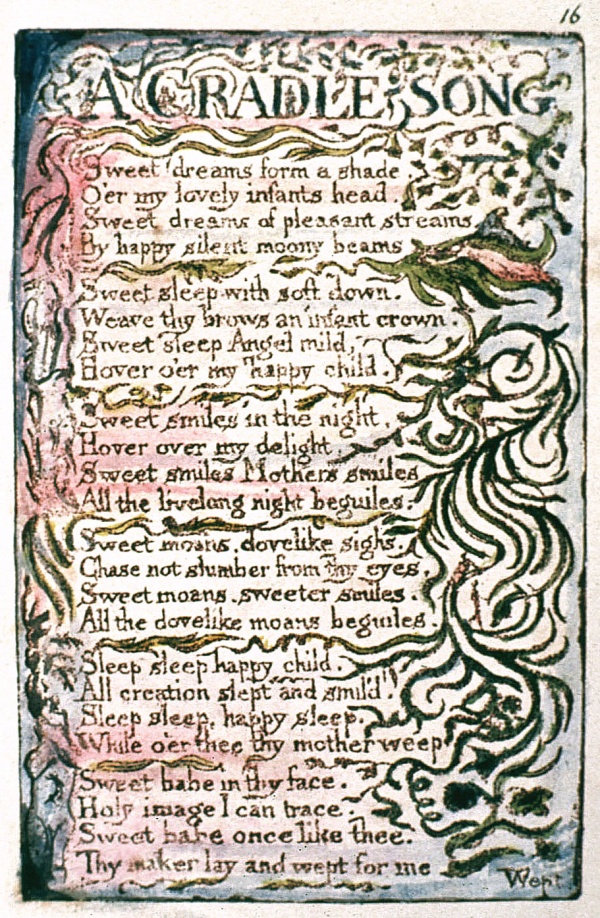 16
A CRADLE SONG
Sweet dreams form a shade,
O'er my lovely infants head.
Sweet dreams of pleasant streams,
By happy silent moony beams
Sweet sleep with soft down,
Weave thy brows an infant crown.
Sweet sleep Angel mild,
Hover o'er my happy child.
Sweet smiles in the night,
Hover over my delight.
Sweet smiles Mothers smiles
All the livelong night beguiles.
Sweet moans, dovelike sighs,
Chase not slumber from thy eyes,
Sweet moans, sweeter smiles,
All the dovelike moans beguiles.
Sleep sleep happy child.
All creation slept and smil'd.
Sleep sleep, happy sleep,
While o'er thee thy mother weep
Sweet babe in thy face,
Holy image I can trace.
Sweet babe once like thee,
Thy maker lay and wept for me
Wept